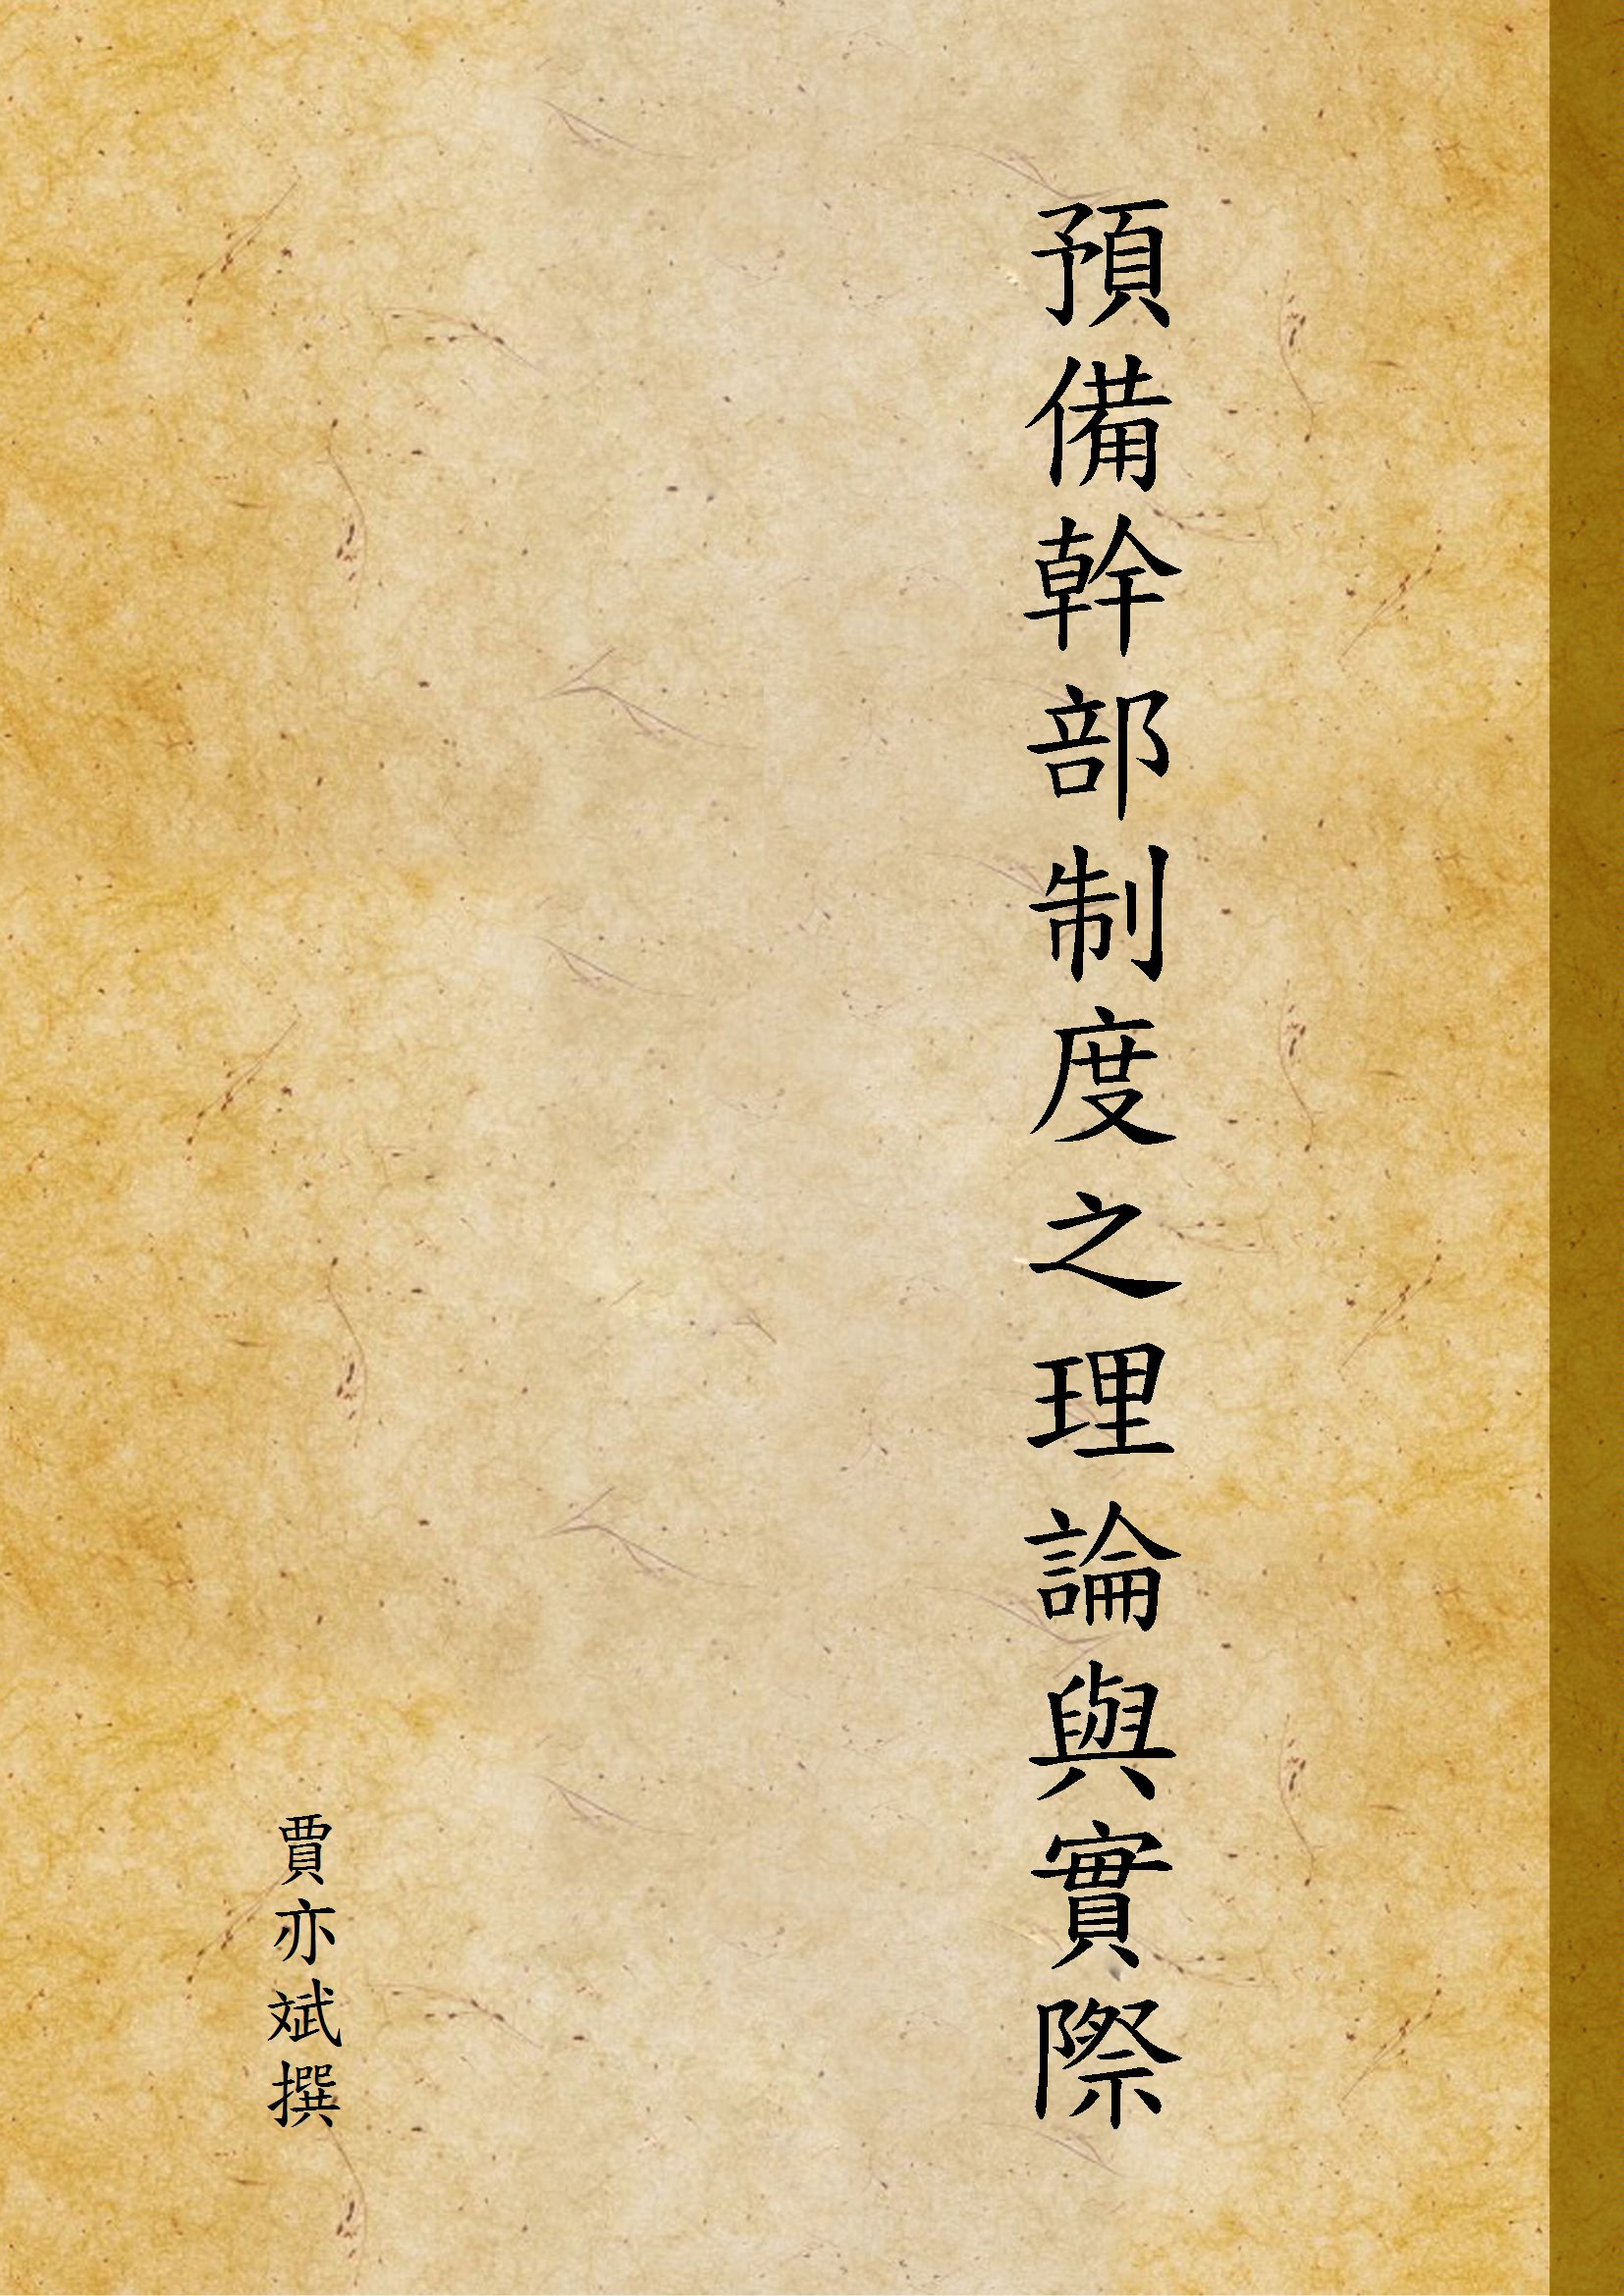 預備幹部制度之理論與實際
賈亦斌撰